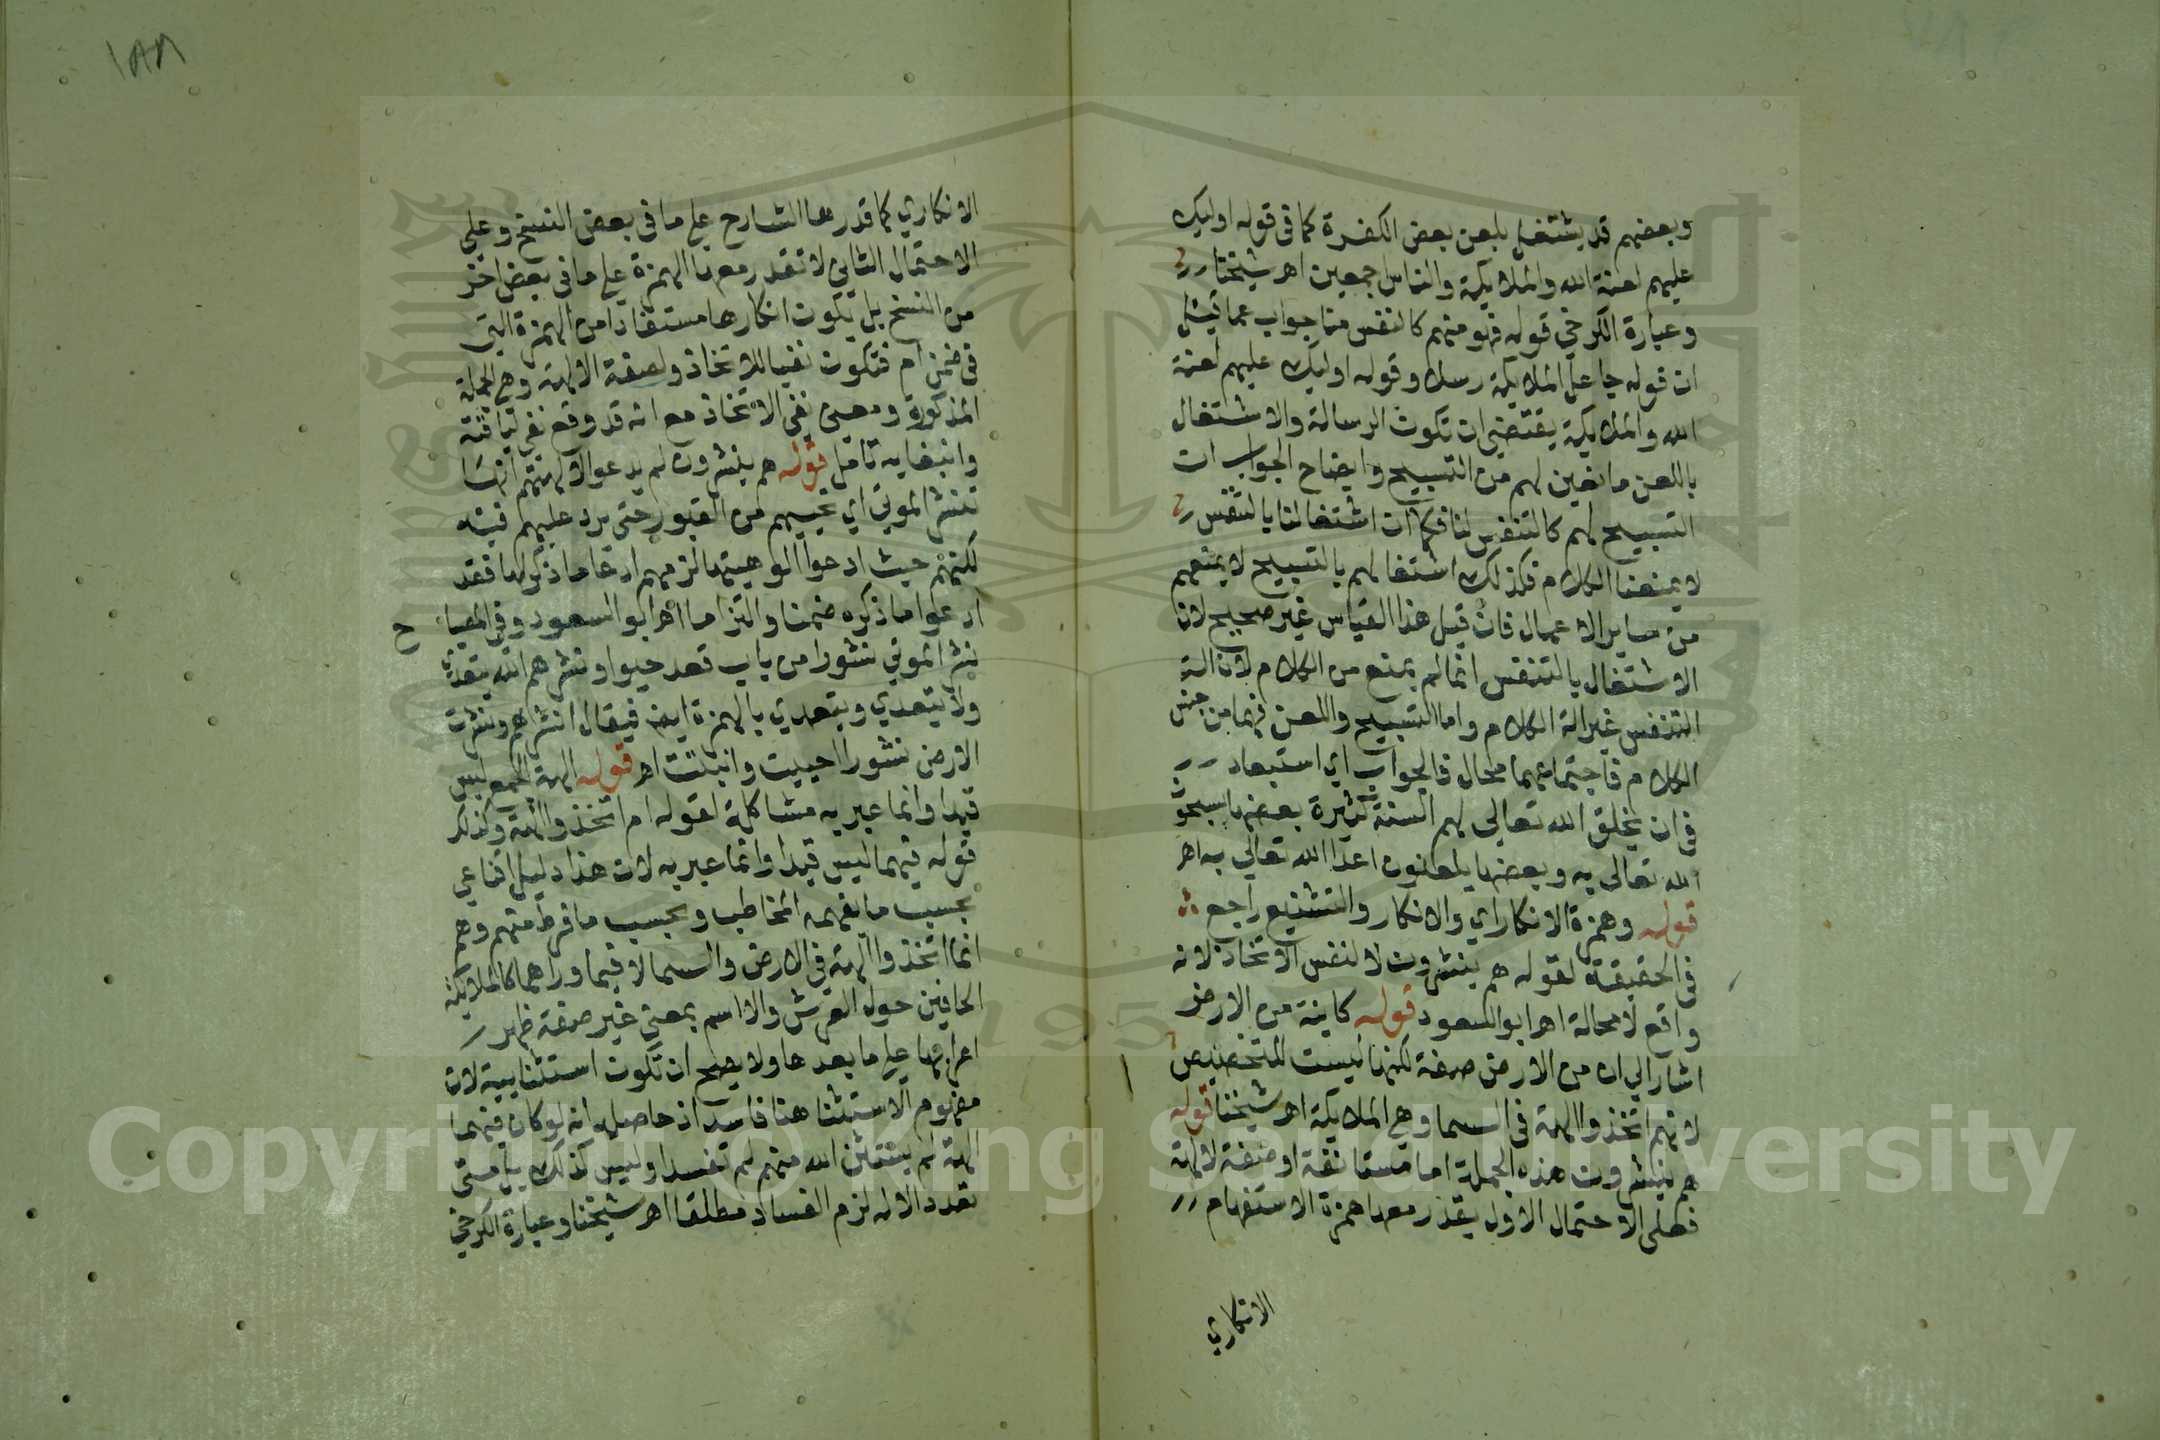 وبعضهم قد يشتغل بلعن بعض الكفرة كما في قوله اوليك
عليهم لعنة الله والملايكة والناس اجمعين اهر شيخنا
وعبارة الكرخي قوله فهو منهم كالنفس منا جواب عما قيل
ان قوله جاعل الملايكة رسلا وقوله اوليك عليهم لعنة
الله والملايكة يقتضي ان تكون الرسالة والاشتغال
باللعن مانعين لهم من التسبيح وايضاح الجواب ان
التسبيح لهم كالتنفس لنا فكما ان اشتغالنا بالتنفس
لا يمنعنا الكلام فكذلك اشتغالهم بالتسبيح لا يمنعهم
من ساير الاعمال فان قيل هذا القياس غير صحيح لان
الاشتغال بالتنفس انما لم يمنع من الكلام لان الة
التنفس غير الة الكلام واما التسبيح واللعن فهما من جنس
الكلام فاجتماعهما محال فالجواب اي استبعاد
في ان يخلق الله تعالى لهم السنة كثيرة بعضها يسبحون
الله تعالى به وبعضها يلعنون اعدا الله تعالي به اهر
قوله وهمزة الانكار اي والانكار والتشنيع راجع
في الحقيقة لقوله هم ينشرون لا لنفس الاتخاذ لانه
واقع لا محالة اهر ابو السعود قوله كاينة من الارض
اشار الي ان من الارض صفة لكنها ليست للتخصيص
لانهم اتخذوا الهة في السما وهي الملايكة اهر شيخنا قوله
هم ينشرون هذه الجملة اما مستانفة او صفة لالهة
فعلى الاحتمال الاول يقدر معها همزة الاستفهام
الانكاري
١٨٨
الانكاري كما قدرها الشارح علي ما في بعض النسخ وعلي
الاحتمال الثاني لا تقدر معها الهمزة علي ما في بعض اخر
من النسخ بل يكون انكارها مستفادا من الهمزة التي
في ضمن ام فتكون نفيا للاتخاذ ولصفة الالهة وهي الجملة
المذكورة ومعنى نفي الاتخاذ مع انه قد وقع نفي لياقته
وانبغايه تامل قوله هم ينشرون لم يدعوا لالهتهم انها
تنشر الموتي اي تحييهم من القبور حتى يرد عليهم فيه
لكنهم حيث ادعوا الوهيتها لزمهم ادعا ما ذكر لها فقد
ادعوا ما ذكره ضمنا والتزاما اهر ابو السعود وفي المصباح
نشر الموتي نشورا من باب قعد حيوا ونشرهم الله يتعدي
ولا يتعدي ويتعدي بالهمزة ايض فيقال انشرهم ونشرت
الارض نشورا احييت وانبتت اهر قوله الهة الجمع ليس
قيدا وانما عبر به مشاكلة لقوله ام اتخذوا الهة وكذلك
قوله فيهما ليس قيدا وانما عبر به لان هذا دليل اقناعي
بحسب ما يفهمه المخاطب وبحسب ما فرط منهم وهم
انما اتخذوا الهة في الارض والسما لا فيما وراهما كالملايكة
الحافين حول العرش والا اسم بمعنى غير صفة ظهر
اعرابها علي ما بعدها ولا يصح ان تكون استثنايية لان
مفهوم الاستثنا هنا فاسد اذ حاصله انه لو كان فيهما
الهة لم يستثن الله منهم لم تفسدا وليس كذلك بل متى
تعدد الاله لزم الفساد مطلقا اهر شيخنا وعبارة الكرخي